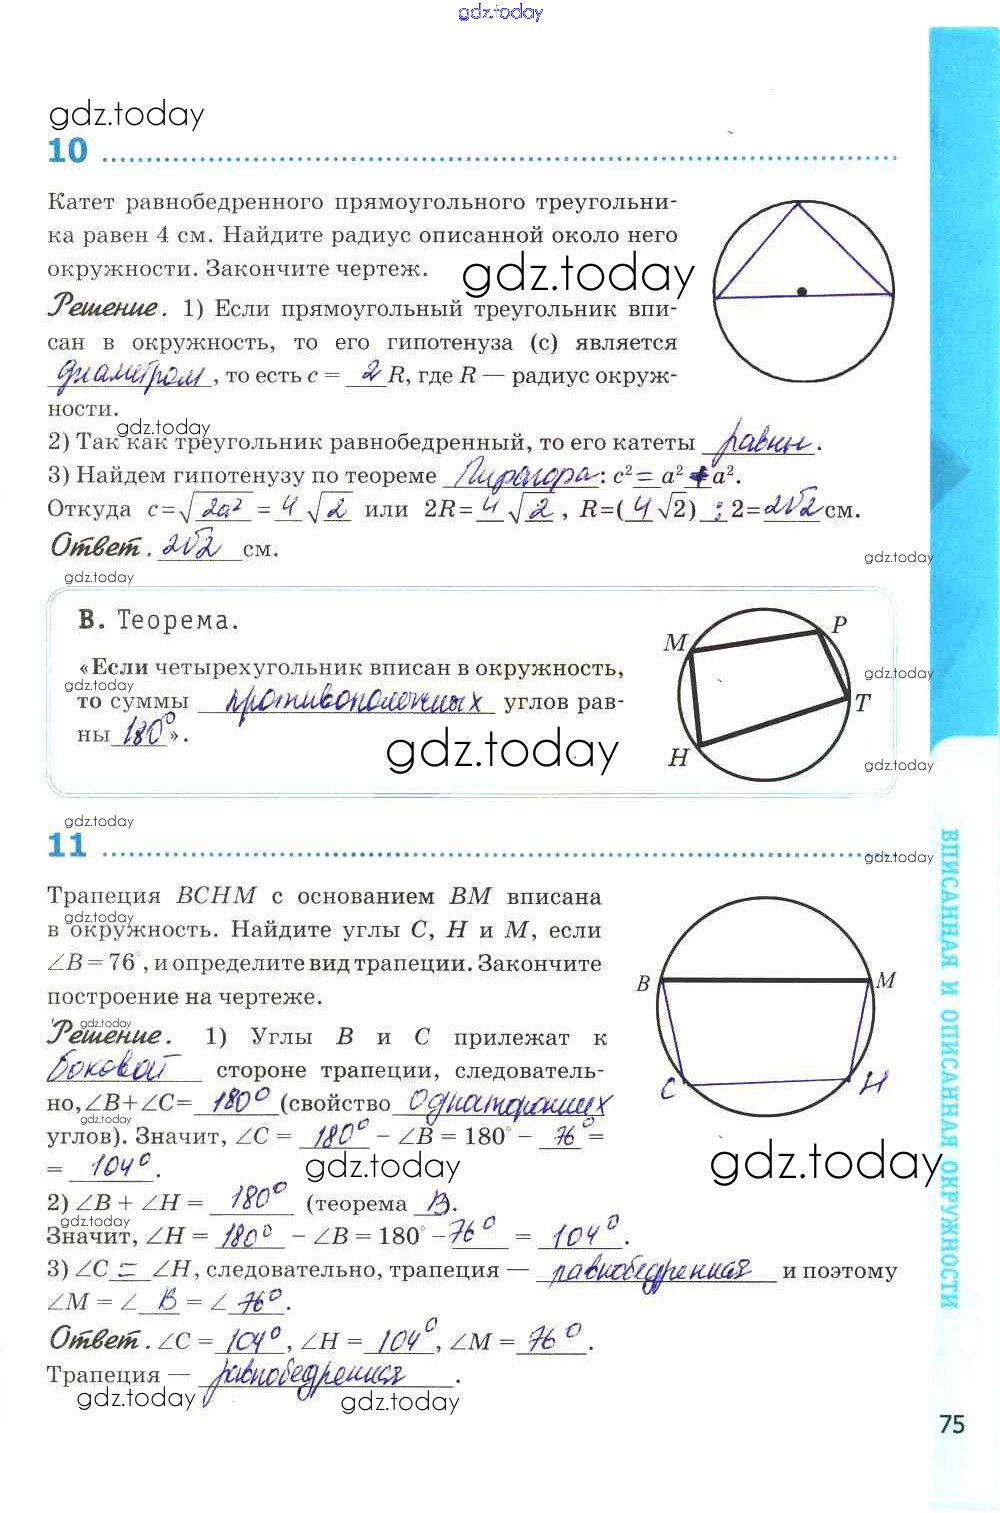 gdz.today
gdz.today
10
Катет равнобедренного прямоугольного треугольни-
ка равен 4 см. Найдите радиус описанной около него
окружности. Закончите чертеж.
gdz.today
Решение. 1) Если прямоугольный треугольник впи-
сан в окружность, то его гипотенуза (c) является
диаметром, то есть c = 2 R, где R — радиус окруж-
ности.
gdz.today
2) Так как треугольник равнобедренный, то его катеты равны.
3) Найдем гипотенузу по теореме Пифагора: c² = a² + a².
Откуда c=√2a² = 4 √2 или 2R= 4 √2, R=( 4 √2) : 2= 2√2 см.
Ответ. 2√2 см.
gdz.today
gdz.today
В. Теорема.
«Если четырехугольник вписан в окружность,
gdz.today
то суммы противоположных углов рав-
ны 180°».
gdz.today
M
P
T
H
gdz.today
gdz.today
gdz.today
11
gdz.today
Трапеция BCHM с основанием BM вписана
gdz.today
в окружность. Найдите углы C, H и M, если
∠B = 76°, и определите вид трапеции. Закончите
построение на чертеже.
gdz.today
Решение. 1) Углы B и C прилежат к
боковой стороне трапеции, следователь-
но, ∠B+∠C= 180° (свойство односторонних
gdz.today
углов). Значит, ∠C = 180° – ∠B = 180° – 76° =
= 104°.
gdz.today
gdz.today
B
M
C
H
2) ∠B + ∠H = 180° (теорема В).
gdz.today
Значит, ∠H = 180° – ∠B = 180° – 76° = 104°.
3) ∠C = ∠H, следовательно, трапеция — равнобедренная и поэтому
∠M = ∠ B = ∠ 76°.
Ответ. ∠C = 104°, ∠H = 104°, ∠M = 76°.
Трапеция — равнобедренная.
gdz.today
gdz.today
ВПИСАННАЯ И ОПИСАННАЯ ОКРУЖНОСТИ
75